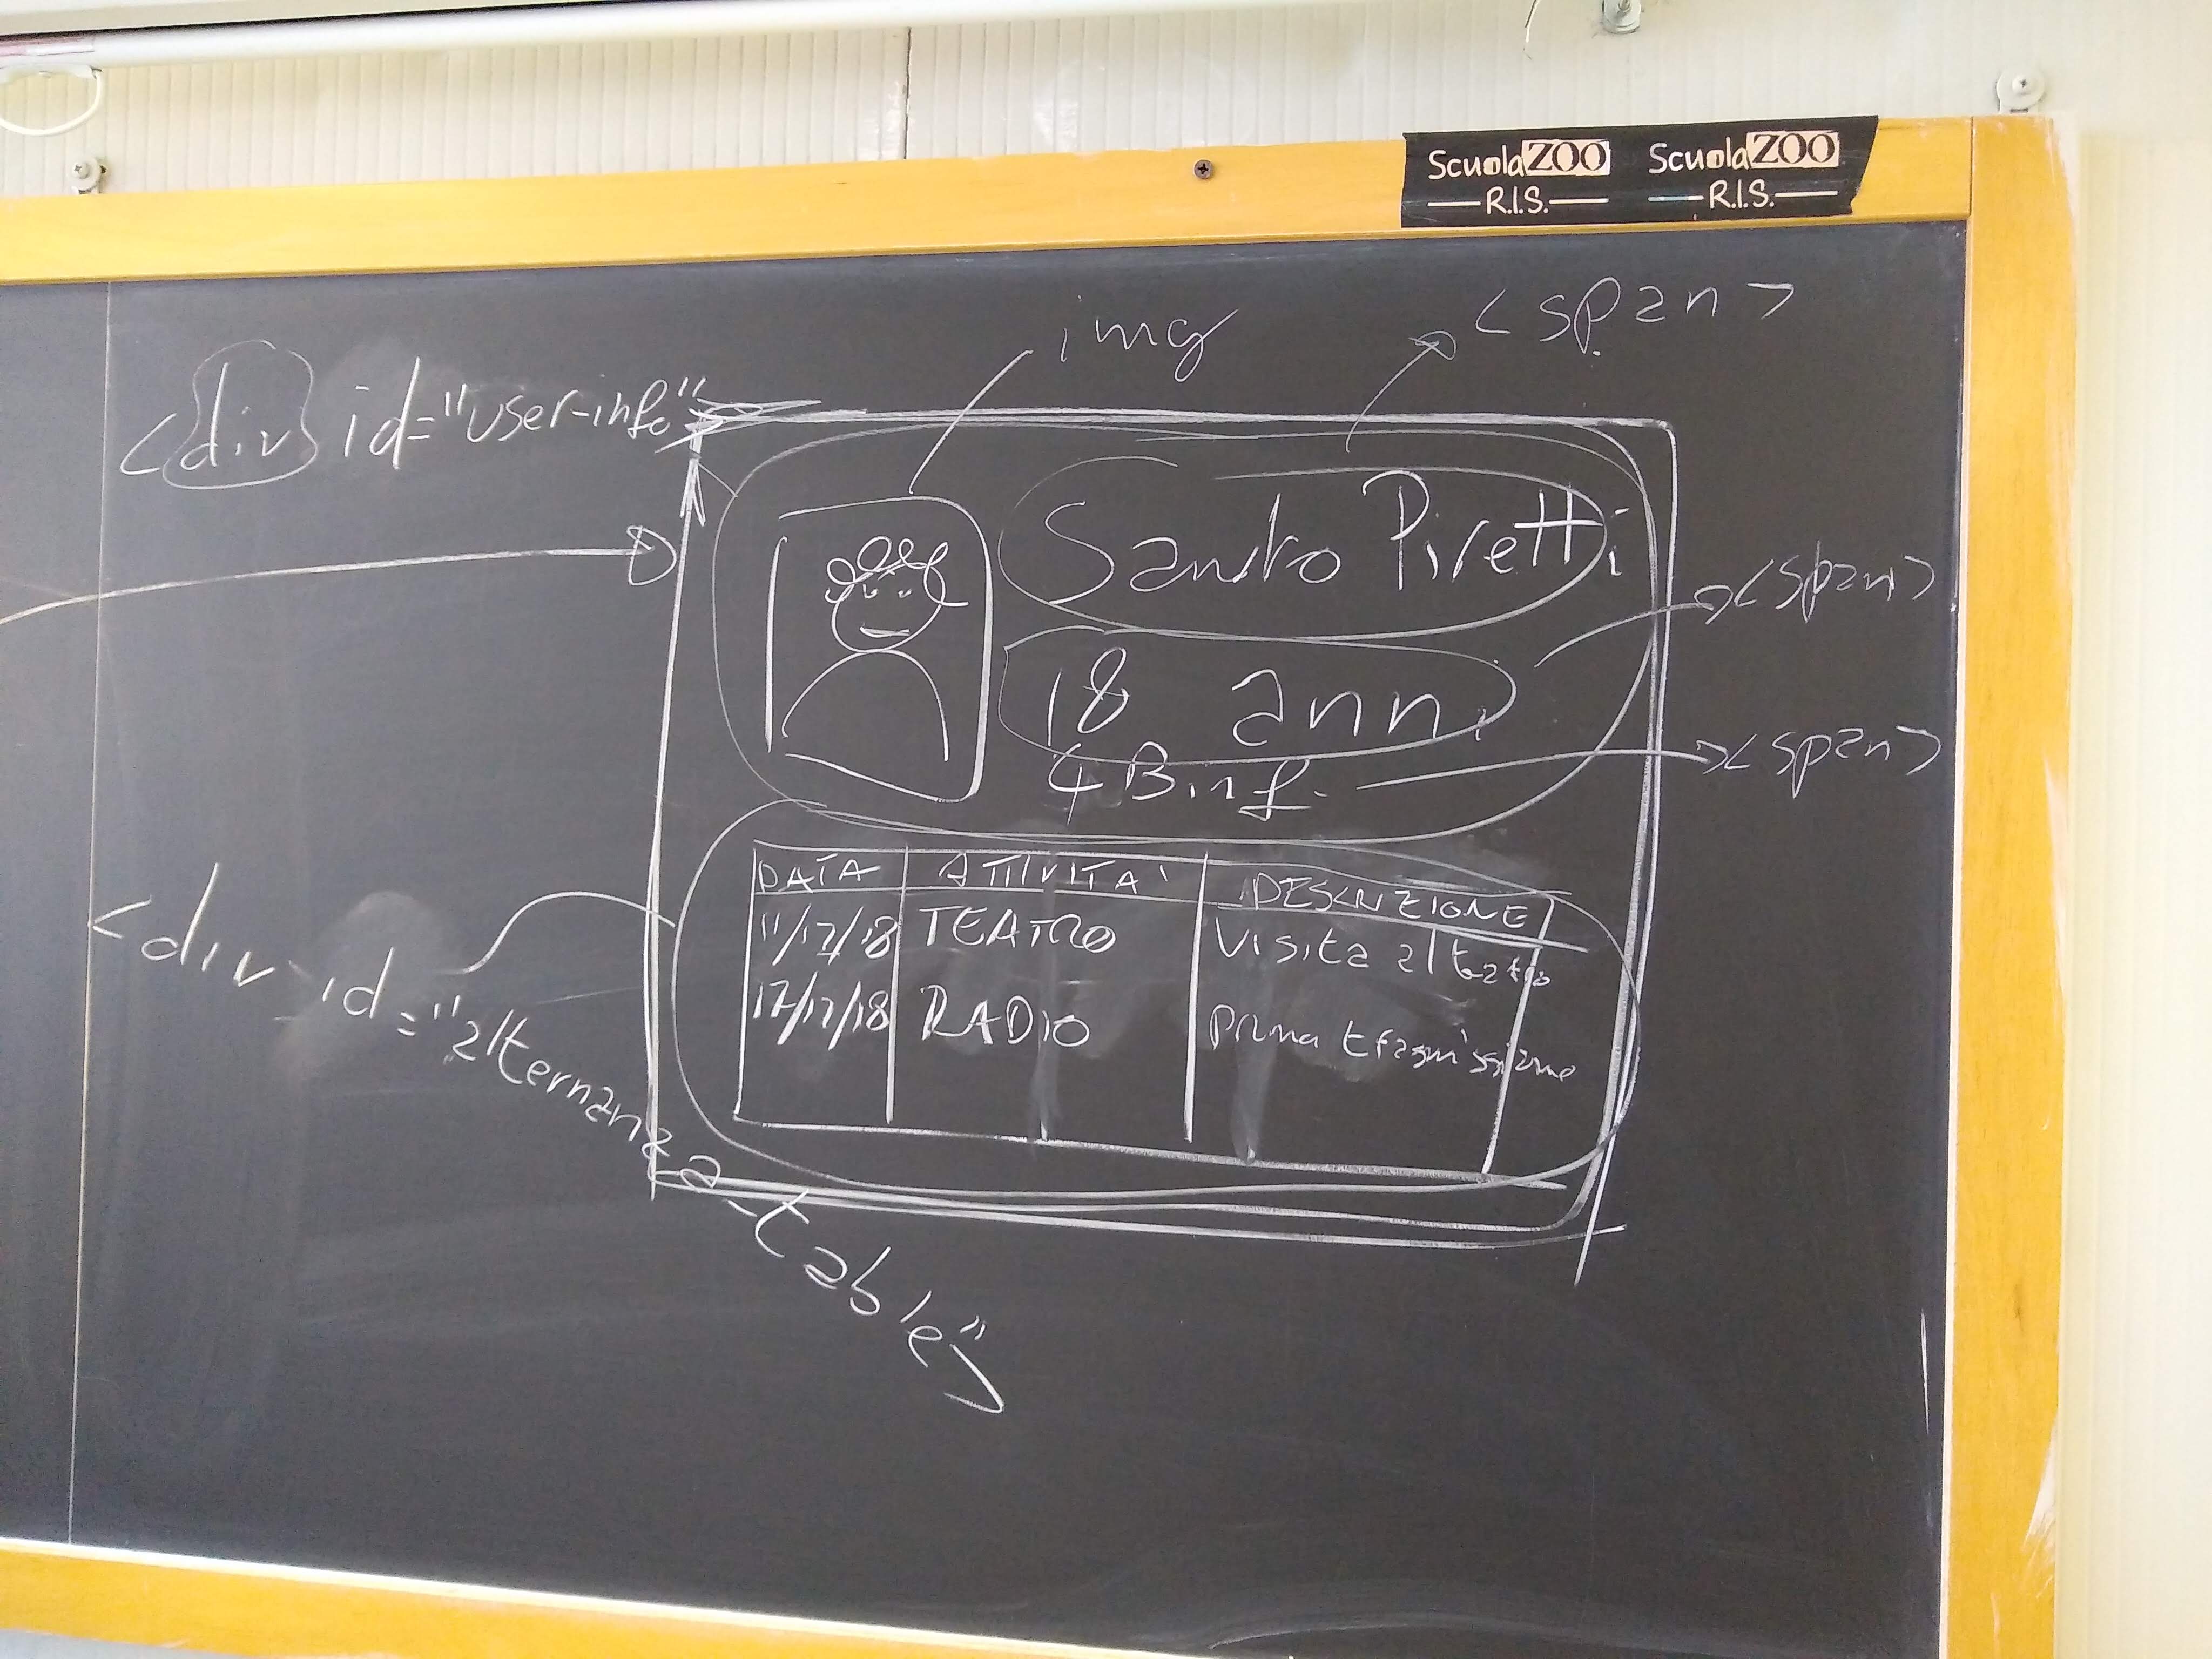 ScuolaZOO ScuolaZOO
R.I.S. R.I.S.
img
<span>
<div id="user-info"
Sandro Piretti
<span>
18 anni
4 B inf.
<span>
DATA ATTIVITA' DESCRIZIONE
11/12/18 TEATRO Visita al teatro
17/12/18 RADIO prima trasmissione
<div id="alternanza-table">